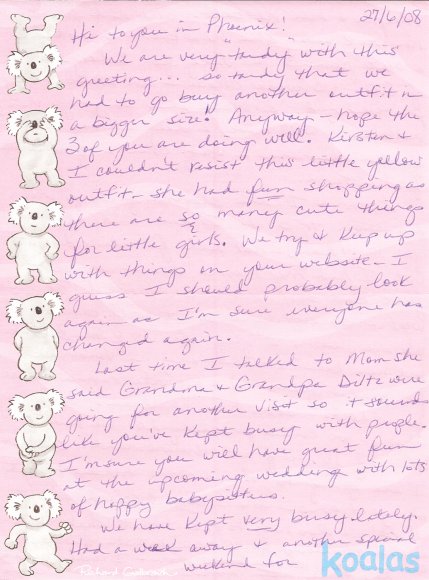 27/6/08
Hi to you in Phoenix!
We are very "tardy" with this
greeting... so tardy that we
had to go buy another outfit in
a bigger size! Anyway - hope the
3 of you are doing well. Kirsten &
I couldn't resist this little yellow
outfit - she had fun shopping as
there are so many cute things
for little girls. We try & keep up
with things on your website - I
guess I should probably look
again as I'm sure everyone has
changed again.
Last time I talked to Mom she
said Grandma & Grandpa Diltz were
going for another visit so it sounds
like you've kept busy with people.
I'm sure you will have great fun
at the upcoming wedding with lots
of happy babysitters.
We have kept very busy lately.
Had a week away & another special
weekend for
koalas
Richard Galbraith